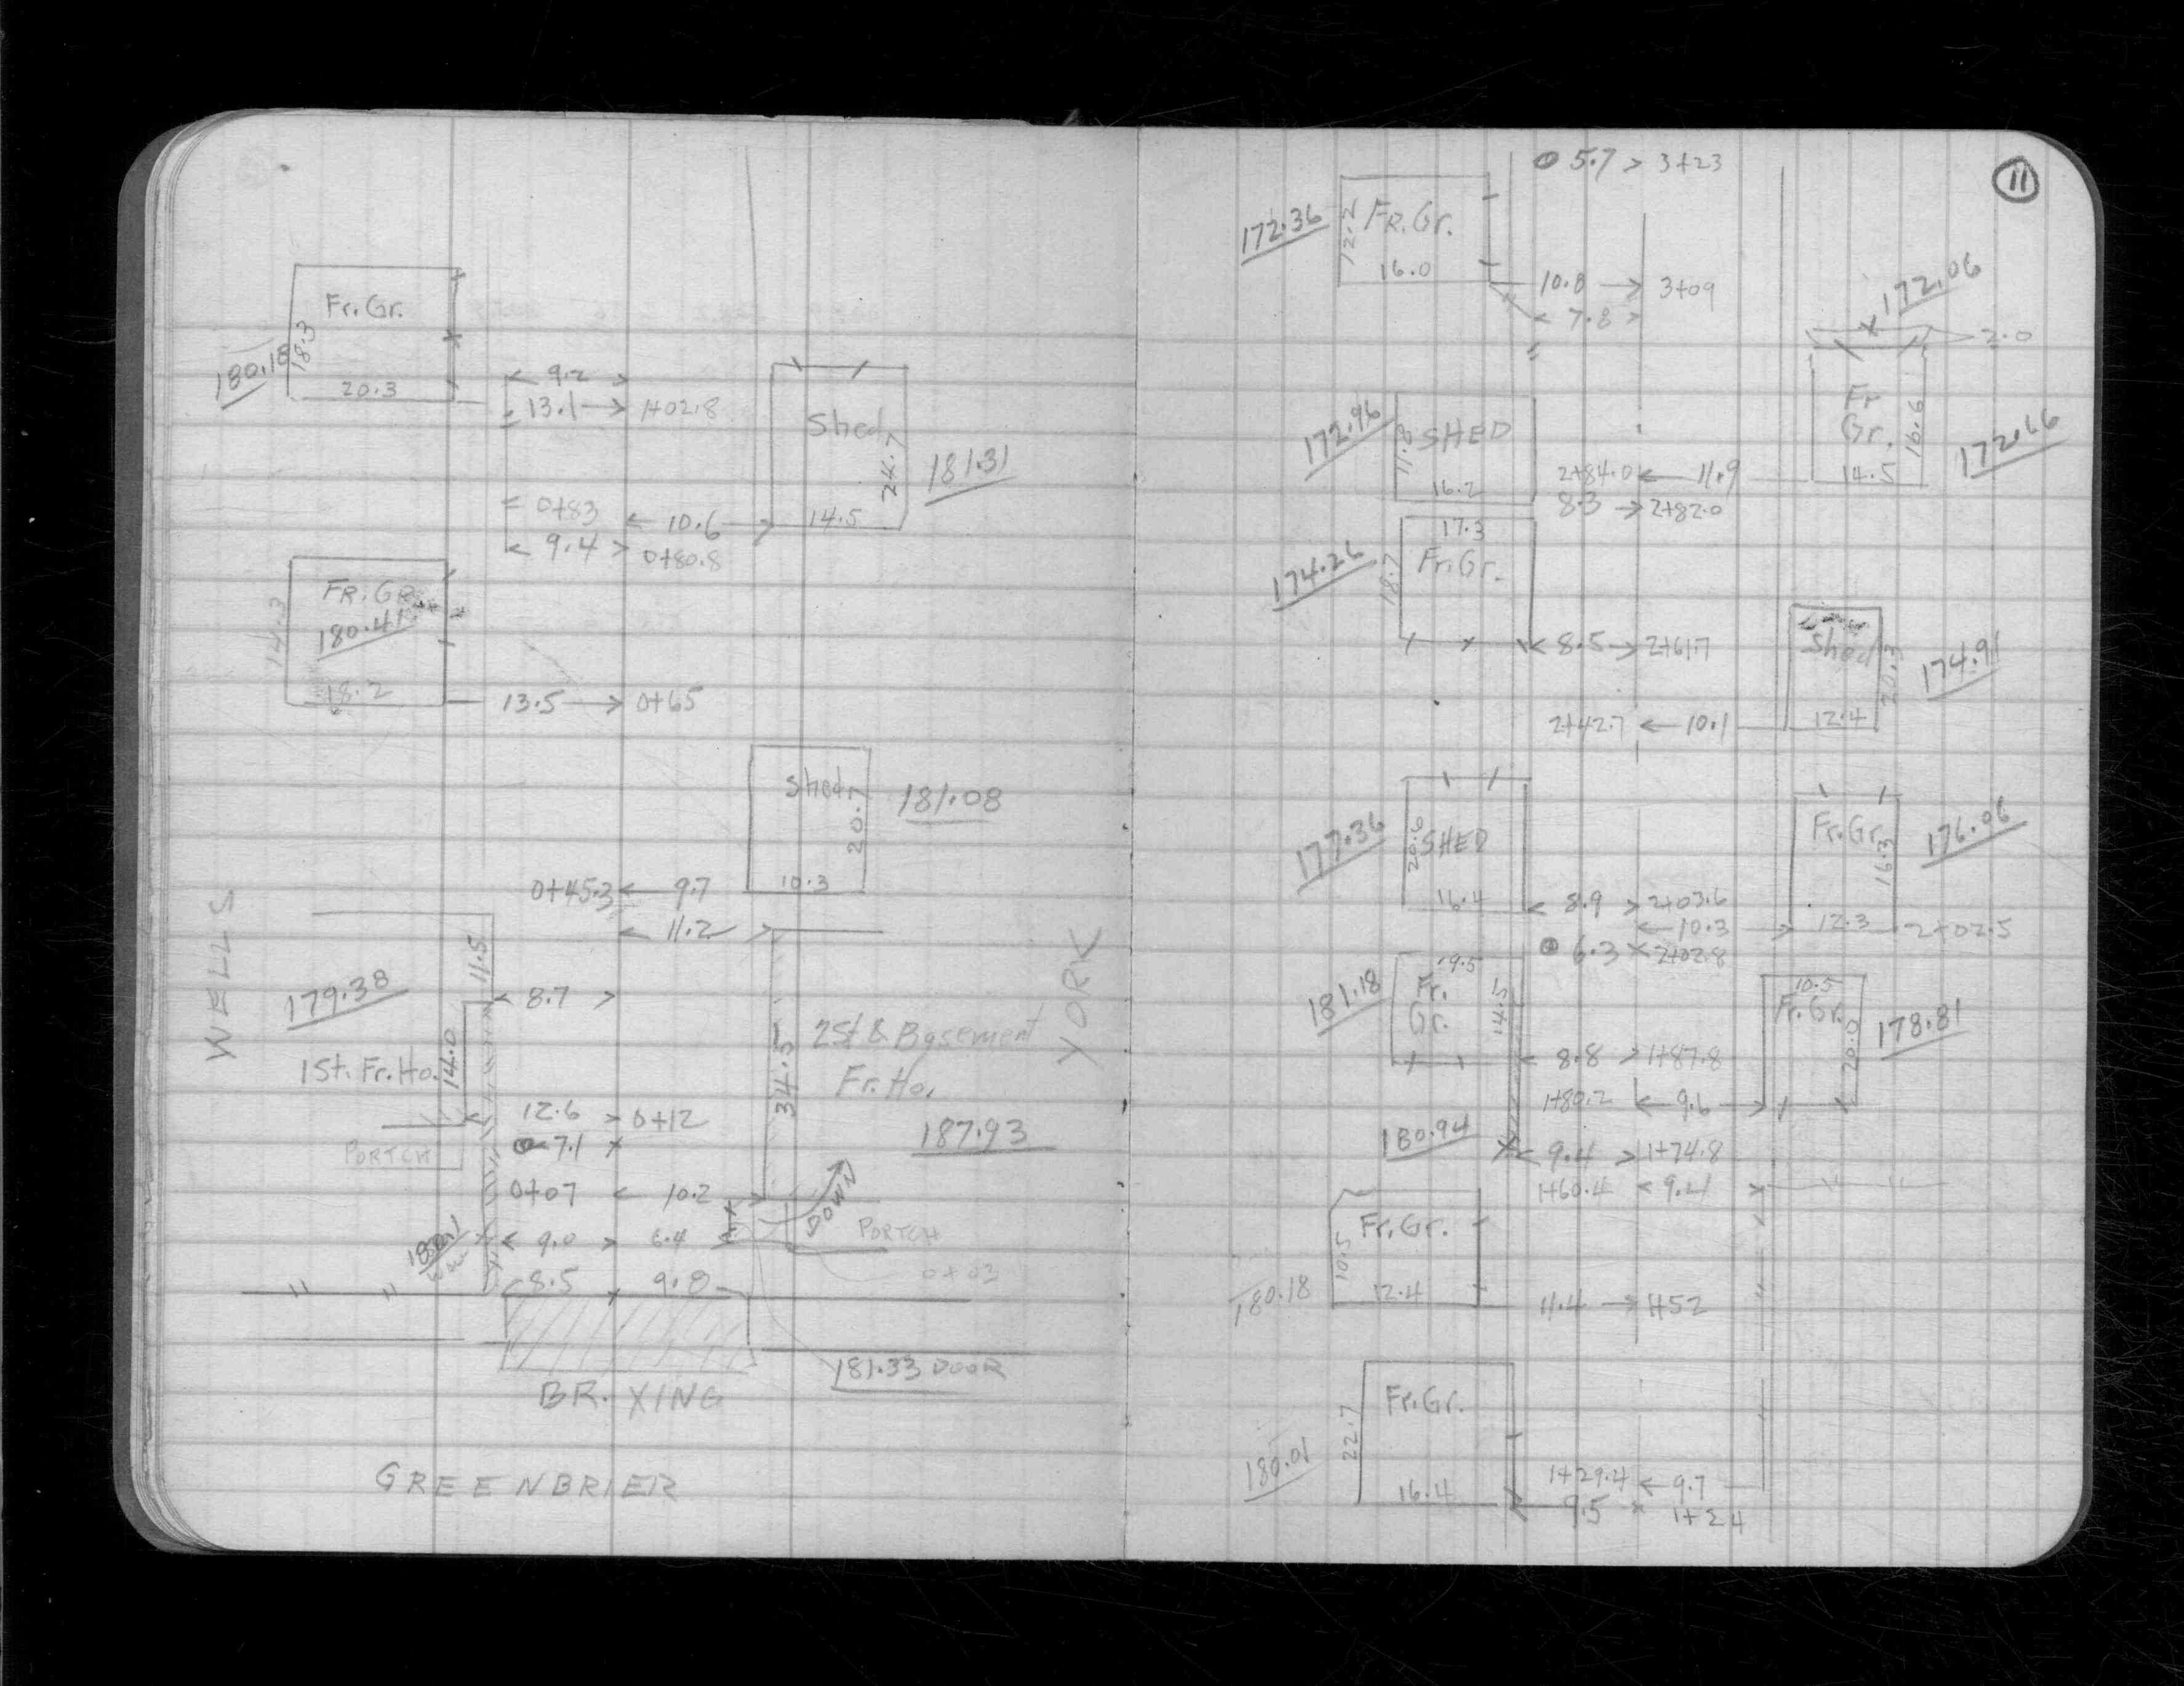 Fr.Gr.
18.3
180.18
20.3
9.2
13.1 → 1+02.8
Shed
24.7
181.31
14.5
= 0+83
← 10.6 →
< 9.4 > 0+80.8
FR.GR.
180.41
14.3
18.2
13.5 → 0+65
Shed
20.7
181.08
10.3
0+45.3 ← 9.7
← 11.2 →
WELLS
YORK
11.5
179.38
< 8.7 >
1St. Fr.Ho.
14.0
2St & Basement
Fr.Ho.
34.5
187.93
12.6 > 0+12
7.1
PORTCH
0+07 ← 10.2
DOWN
< 9.0 > 6.4
PORTCH
0+03
8.5 9.8
181.33 DOOR
BR. XING
GREENBRIER
11
5.7 > 3+23
172.36
12.2
FR.Gr.
16.0
10.8 → 3+09
< 7.8 >
172.06
2.0
172.96
11.8
SHED
16.2
Fr
Gr.
16.6
14.5
172.66
2+84.0 ← 11.9
8.3 → 2+82.0
17.3
174.26
18.7
Fr.Gr.
< 8.5 → 2+61.7
Shed
20.3
174.91
12.4
2+42.7 ← 10.1
177.36
20.6
SHED
16.4
Fr.Gr.
16.3
176.96
12.3
< 8.9 > 2+03.6
← 10.3 → 2+02.5
6.3 × 2+02.8
19.5
181.18
Fr.
Gr.
14.5
10.5
Fr.Gr.
20.0
178.81
< 8.8 > 1+87.8
1+80.2 ← 9.6 →
180.94
< 9.4 > 1+74.8
1+60.4 <
Fr.Gr.
10.5
180.18
12.4
11.4 → 1+52
Fr.Gr.
22.7
180.01
16.4
1+29.4 ← 9.7
9.5